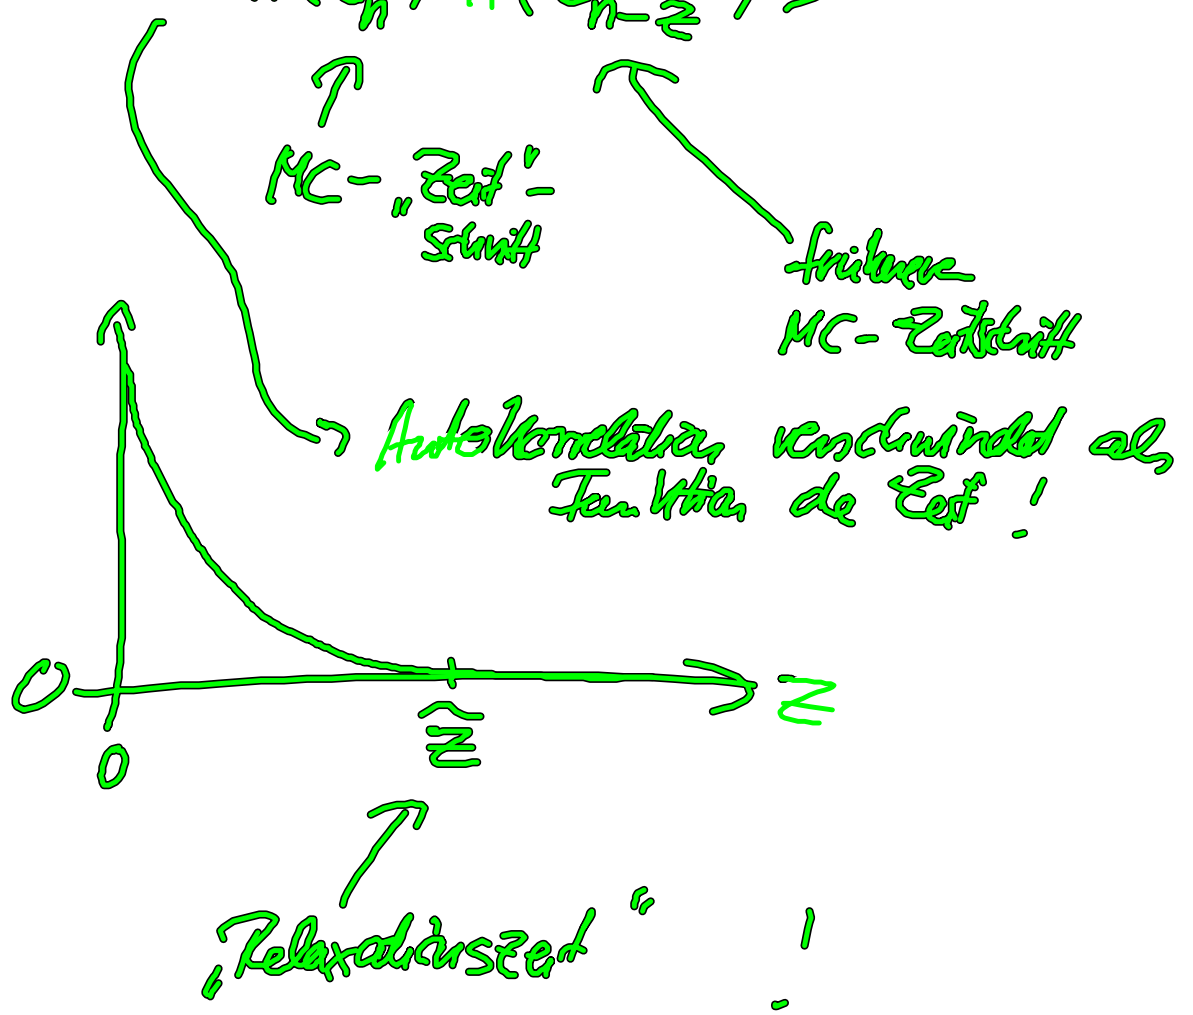 MC-„Zeit"-
schritt
frühere
MC-Zeitschritt
Autokorrelation verschwindet als
Funktion de Zeit !
0
z
ẑ
0
„Relaxationszeit" !